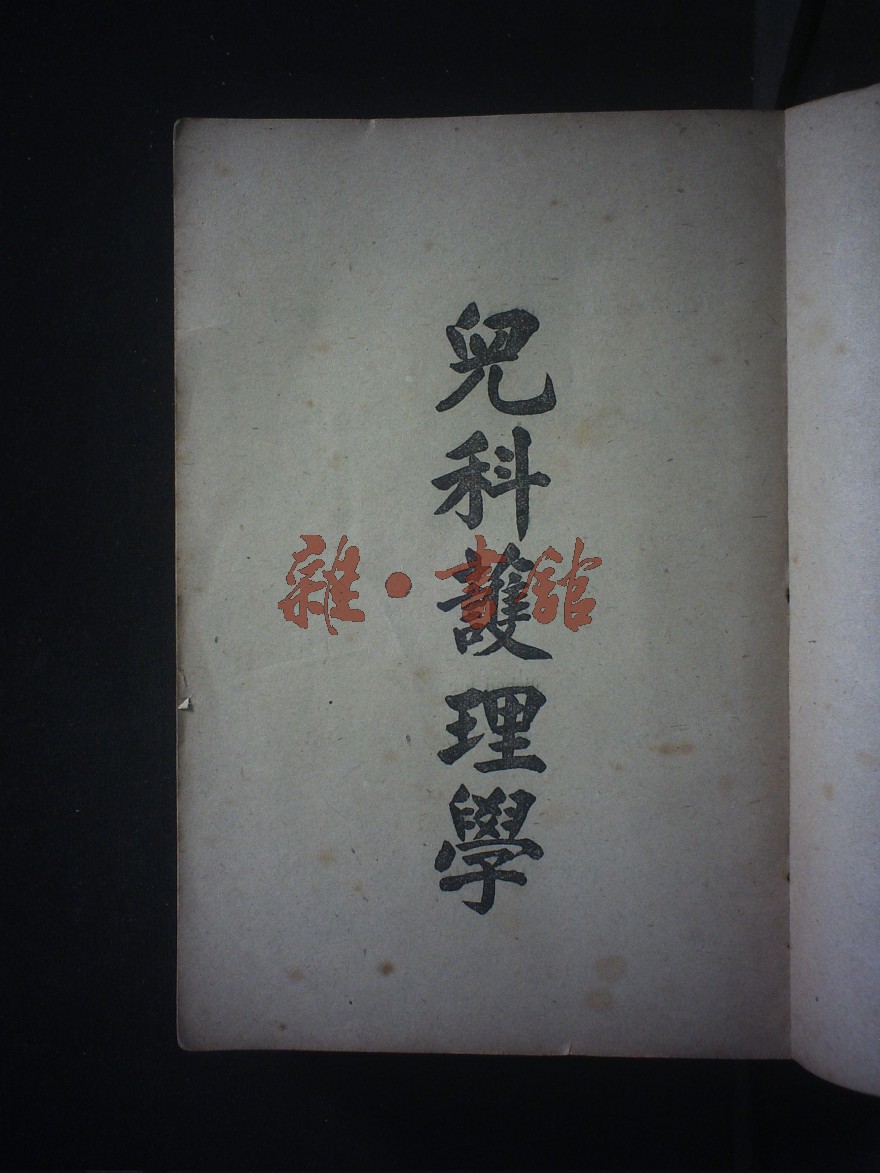 兒科護理學
雜·書館